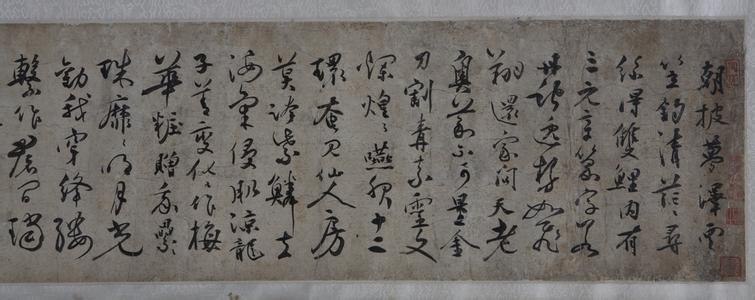 朝披夢澤雲
笠釣清茫々尋
絲得雙鯉內有
三元章篆字若
丹蛇逸勢如飛
翔還家問天老
奧義不可量金
刀割青素靈文
爛煌々嚥服十二
環奄見仙人房
莫跨紫鱗去
海氣侵肌涼龍
子善變化化作梅
華粧贈我纍々
珠靡々明月光
勸我穿絳縷
繫作裙間璫